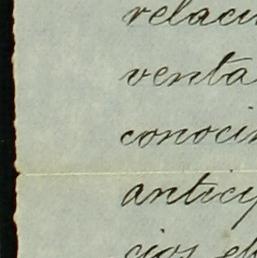 relaci
venta
conocin
anticip
cios, el